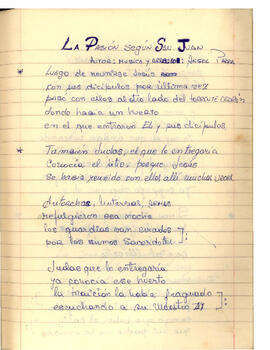 LA PASIÓN SEGÚN SAN JUAN
AUTOR: MUSICA y ANGEL PARRA
* Luego de reunirse Jesús
con sus discípulos por última vez
pasó con ellos al otro lado del TORRENTE CEDRÓN
donde había un huerto
en el que entraron El y sus discípulos
* También Judas, el que lo entregaría
conocía el sitio, porque Jesús
se había reunido con ellos allí muchas veces
Antorchas, linternas,
refulgieron esa noche
los guardias eran enviados
por los sumos Sacerdotes
Judas que lo entregaría
ya conocía ese huerto
la traición la había fraguado
escuchando a su Maestro